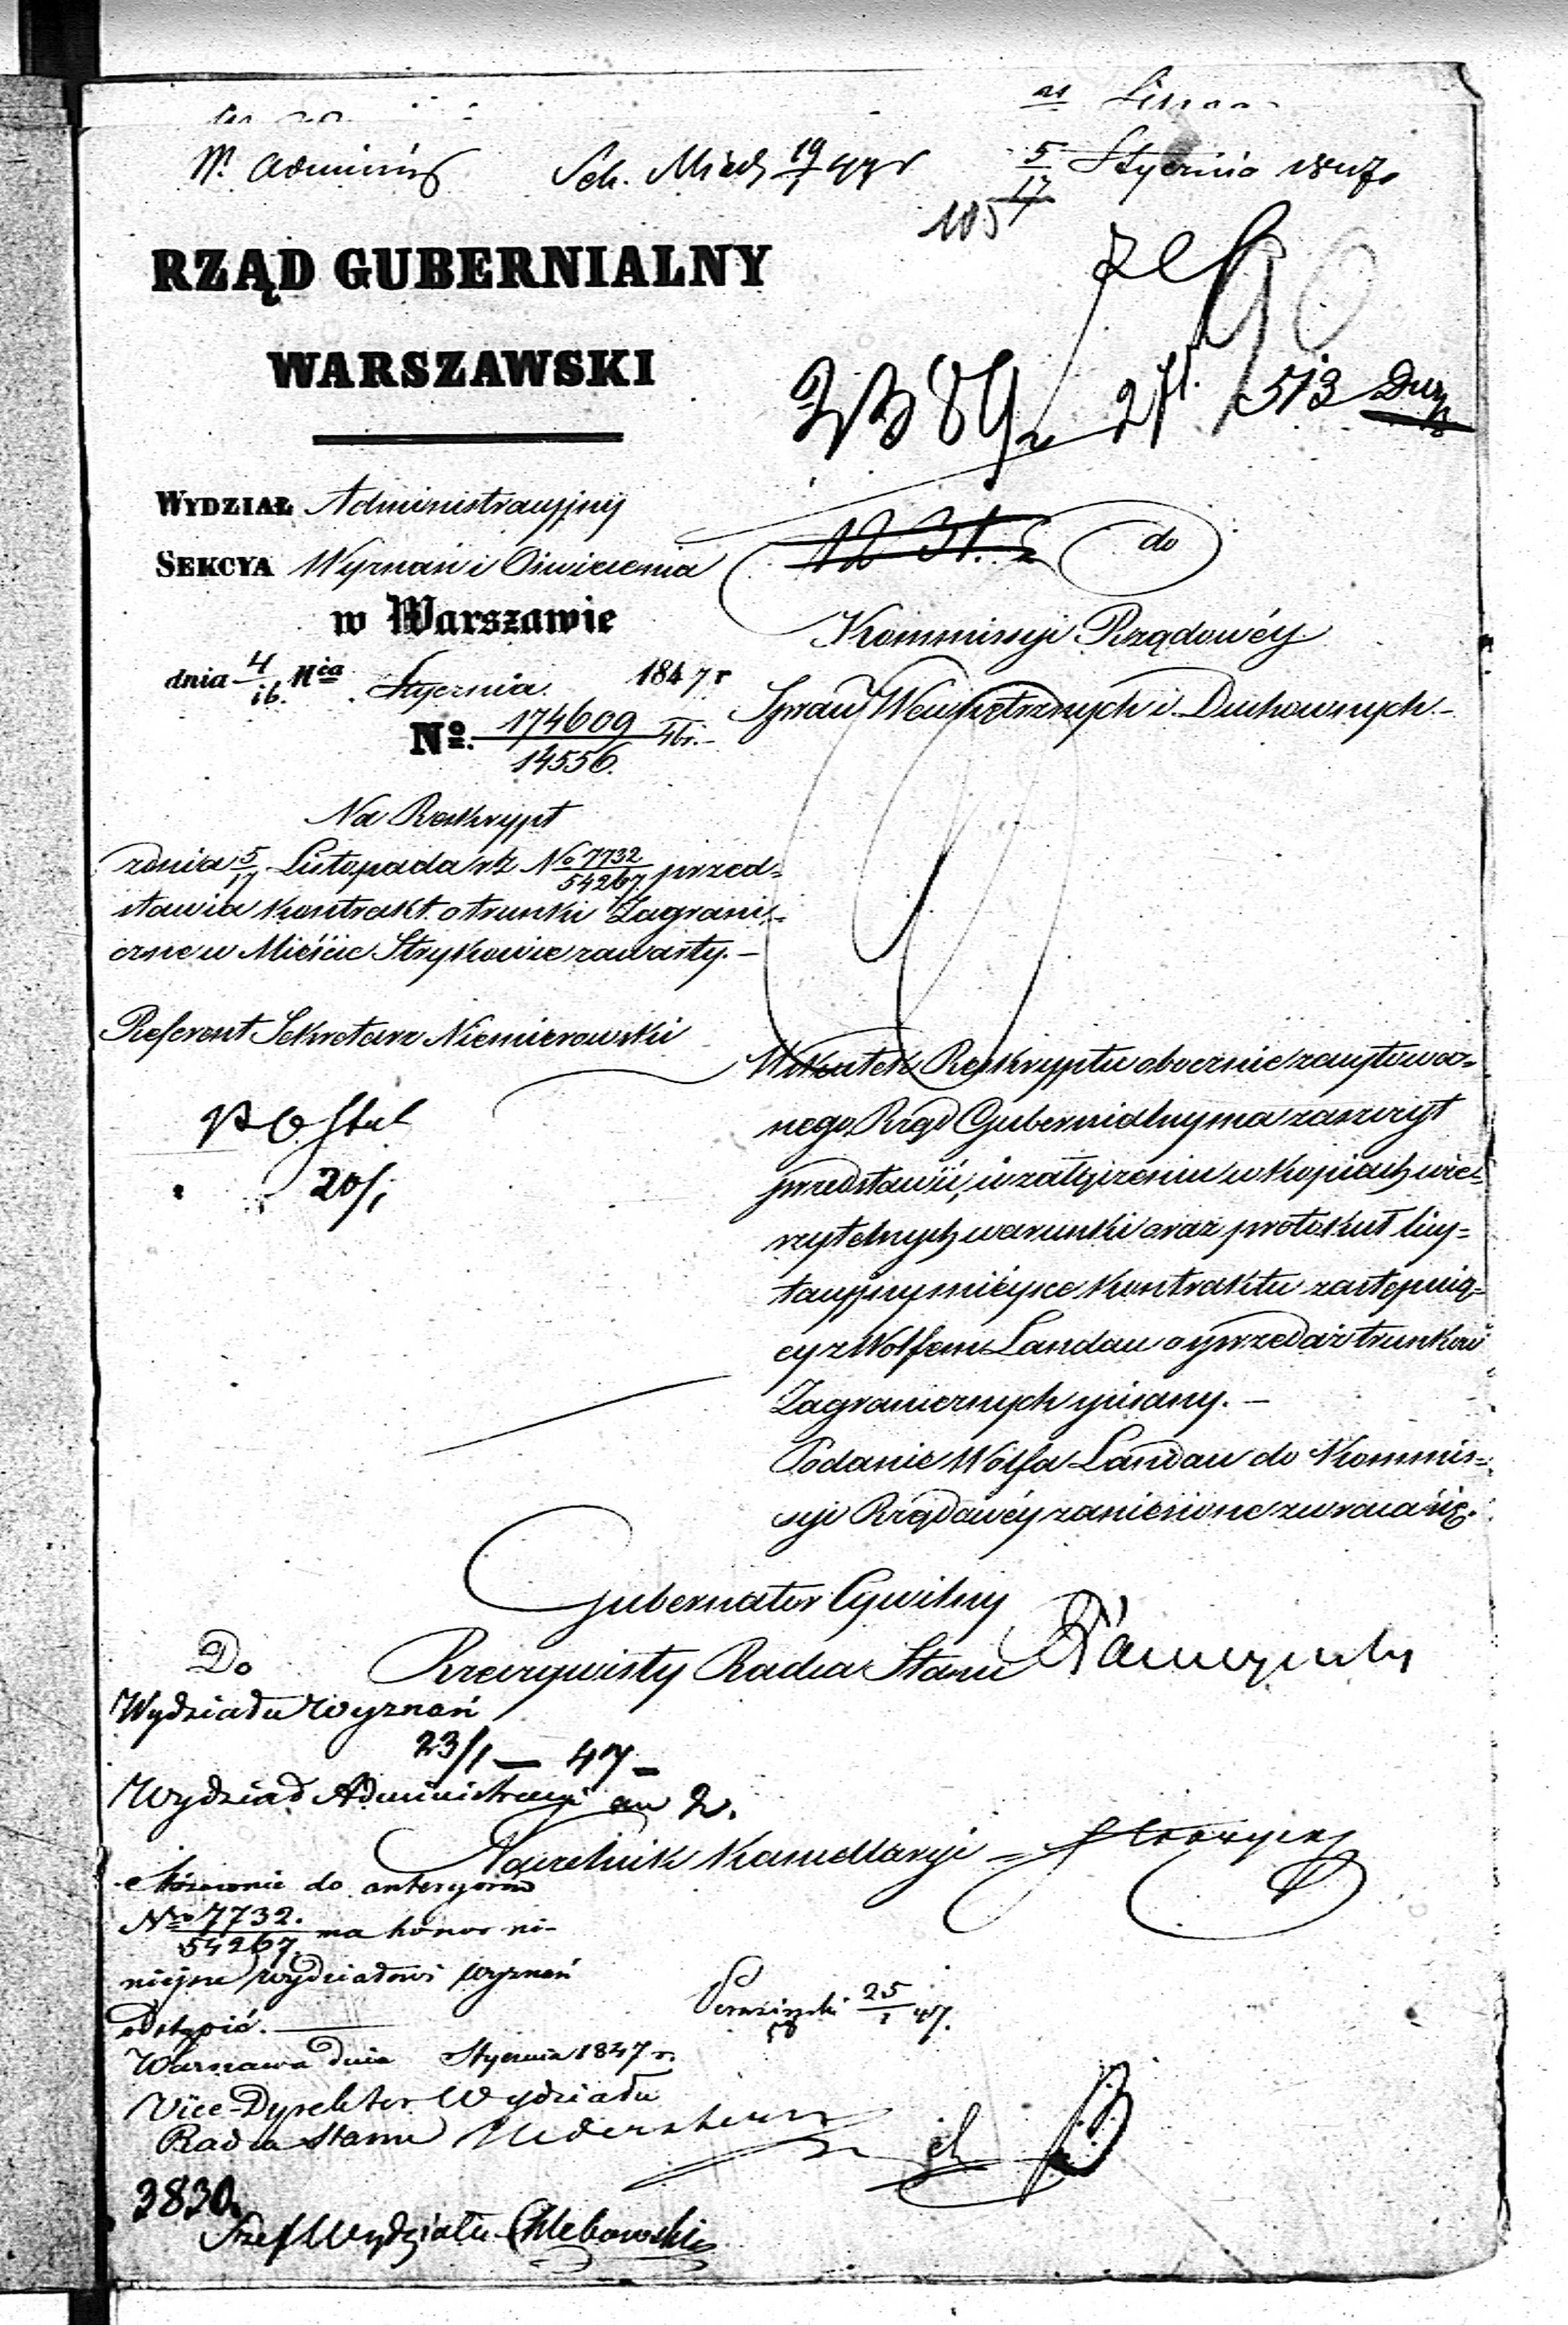 5/17 Stycznia 1847.
105
RZĄD GUBERNIALNY
WARSZAWSKI
90
513
WYDZIAŁ Administracyjny
SEKCYA Wyznań i Oświecenia
w Warszawie
dnia 4/16. Mca Stycznia 1847 r
No. 174609/14556.
do
Kommissyi Rządowéy
Spraw Wewnętrznych i Duchownych.-
Na Reskrypt
z dnia 5/17 Listopada rz No 7732/54267 przed=
stawia kontrakt o trunki Zagrani=
czne w Mieście Strykowie zawarty.-
Referent Sekretarz Niemierowski
20/1
Wskutek Reskryptu obocznie zacytowa=
nego, Rząd Gubernialny ma zaszczyt
przedstawić, w załączeniu w kopiach wie=
rzytelnych warunki oraz protokuł licy=
tacyjny miéysce kontraktu zastępują=
cy z Wolfem Landau o sprzedaż trunków
Zagranicznych spisany.-
Podanie Wolfa Landau do Kommis=
syi Rządowéy zaniesione zwraca się.
Gubernator Cywilny
Rzeczywisty Radca Stanu
Do
Wydziału Wyznań
23/1 - 47-
Wydział Administracyi
Naczelnik Kancellaryi
Stósownie do
No 7732./54267. ma honor ni-
niejsze Wydziałowi Wyznań
odstąpić.
Warszawa dnia Stycznia 1847 r.
25/1 47.
Vice-Dyrektor Wydziału
Radca Stanu
3830.
Szef Wydziału Chlebowski